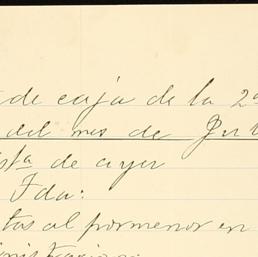 de caja de la 2ª
del mes de
sta de ayer
Fda:
tas al pormenor en